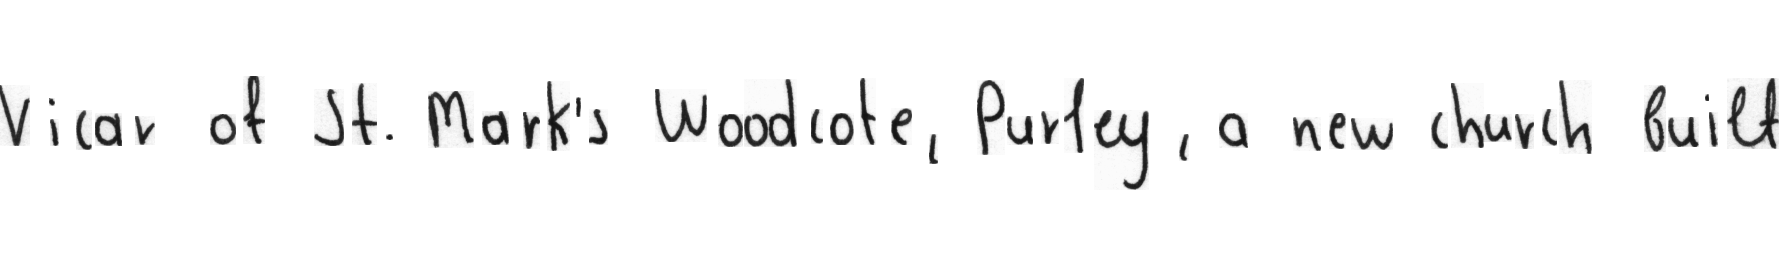 Vicar of St. Mark's Woodcote, Purley, a new church built